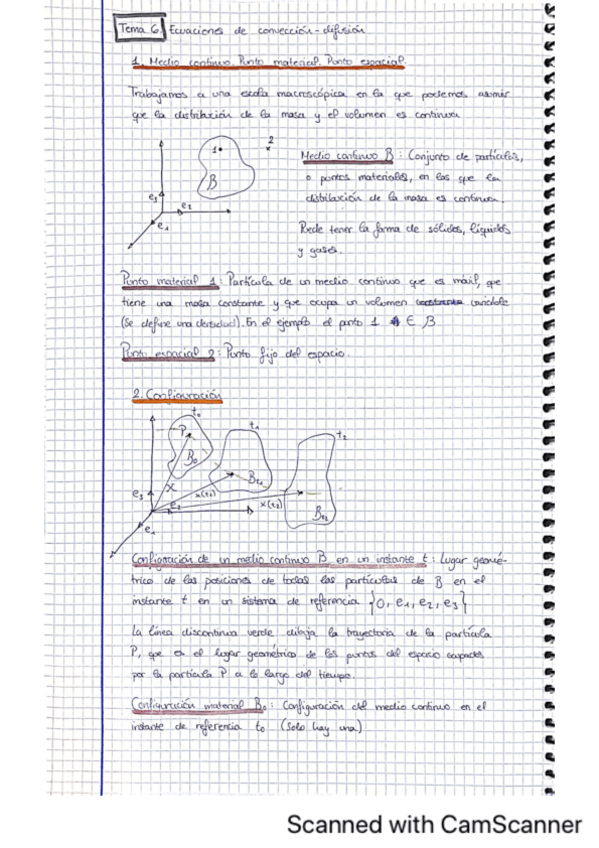 Tema 6. Ecuaciones de convección-difusión
1. Medio continuo. Punto material. Punto espacial.
Trabajamos a una escala macroscópica en la que podemos asumir
que la distribución de la masa y el volumen es continua.
1 2
B
e3 e2
e1
Medio continuo B: Conjunto de partículas,
o puntos materiales, en los que la
distribución de la masa es continua.
Puede tener la forma de sólidos, líquidos
y gases.
Punto material 1: Partícula de un medio continuo que es móvil, que
tiene una masa constante y que ocupa un volumen variable
(se define una densidad). En el ejemplo el punto 1 ∈ B
Punto espacial 2: Punto fijo del espacio.
2. Configuración
t0 t1 t2
P
B0 Bt1 Bt2
X x(t1) x(t2)
e3 e2
e1
Configuración de un medio continuo B en un instante t: Lugar geomé-
trico de las posiciones de todas las partículas de B en el
instante t en un sistema de referencia {0, e1, e2, e3}
La línea discontinua verde dibuja la trayectoria de la partícula
P, que es el lugar geométrico de los puntos del espacio ocupados
por la partícula P a lo largo del tiempo.
Configuración material B0: Configuración del medio continuo en el
instante de referencia t0 (Solo hay una)
Scanned with CamScanner